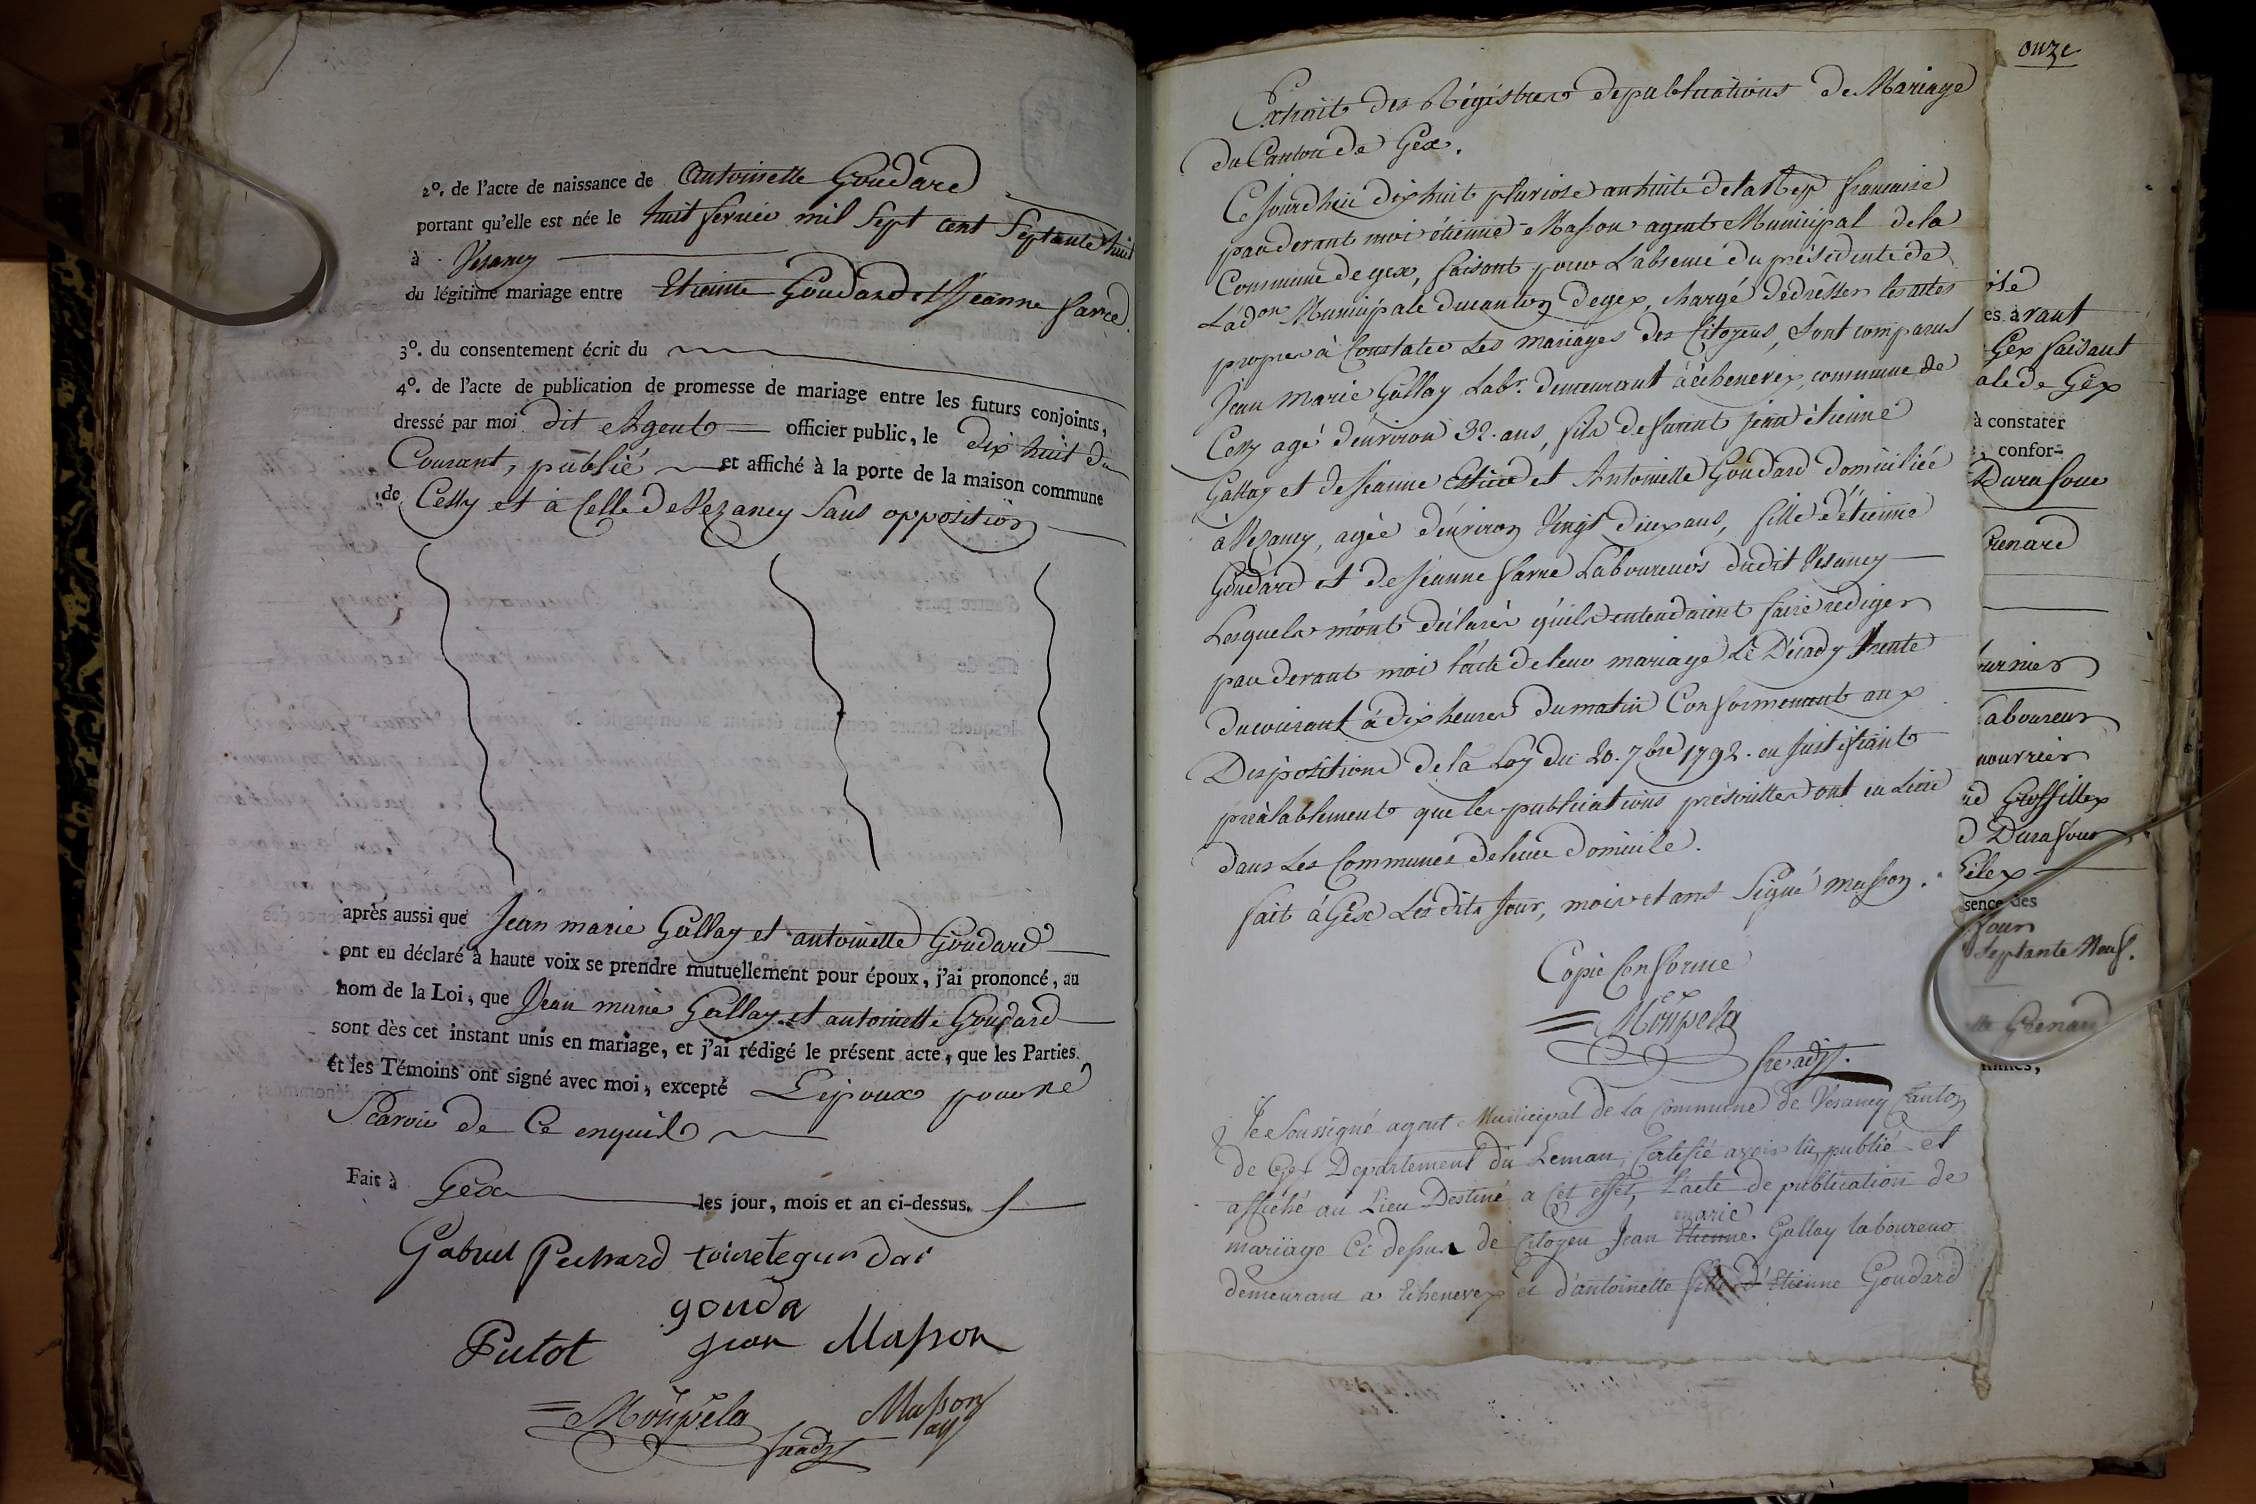 2º. de l'acte de naissance de Antoinette Goudard
portant qu'elle est née le huit fevrier mil Sept cent Septante huit
à Vesancy
du légitime mariage entre Etienne Goudard et Jeanne farre
3º. du consentement écrit du
4º. de l'acte de publication de promesse de mariage entre les futurs conjoints,
dressé par moi dit Agent officier public, le dix huit du
Courant, publié et affiché à la porte de la maison commune
de Cessy et à Celle de Vezancy Sans opposition
après aussi que Jean marie Gallay et antoinette Goudard
ont eu déclaré à haute voix se prendre mutuellement pour époux, j'ai prononcé, au
nom de la Loi, que Jean marie Gallay et antoinette Goudard
sont dès cet instant unis en mariage, et j'ai rédigé le présent acte, que les Parties
et les Témoins ont signé avec moi, excepté L'epoux pour ne
Scavoir de Ce enquis
Fait à Gex les jour, mois et an ci-dessus.
Gabriel Pechard
gouda
Putot jean Masson
Monpela Masson
ag
onze
Extrait des Régistres de publications de Mariage
du Canton de Gex.
Ce jourdhui dix huit pluviose an huit de la Rep française
par devant moi étienne Masson agent Municipal de la
Commune de gex, faisant pour L'absence du président de
L'adon Municipale du canton de gex, chargé de dresser les actes
propres à Constater les mariages des Citoyens, Sont comparus
Jean Marie Gallay Labr. demeurant à échenevex, commune de
Cessy agé d'environ 32 ans, fils de furent jean étienne
Gallay et de jeanne et Antoinette Goudard domiciliée
à Vesancy, agée d'environ Vingt deux ans, fille d'étienne
Goudard et de Jeanne farre Laboureurs dudit Vesancy
Lesquels m'ont déclarés qu'ils entendaient faire rediger
par devant moi l'acte de leur mariage Le Décady trente
du courant à dix heures du matin Conformement aux
Dispositions de la Loy du 20. 7bre 1792. en justifiant
préalablement que les publications prescrittes ont eu Lieu
dans Les Communes de leur domicile.
fait à Gex Les dits Jour, mois et ans Signé Masson.
Copie Conforme
Monpela
Je Soussigné agent Municipal de la Commune de Vésancy Canton
de Gex Departement du Leman, Certifié avoir lû, publié et
affiché au Lieu Destiné a Cet effet, L'acte de publication de
marie
mariage Ci dessus de Citoyen Jean Etienne Gallay laboureur
demeurant a Echenevex et d'antoinette fille d'Etienne Goudard
es avant
Gex faisant
ale de Gex
à constater
confor-
Durafour
Grenard
urnier
aboureur
ouvrier
Grossillex
Durafour
silex
sence des
four
Septante Neuf.
Grenard